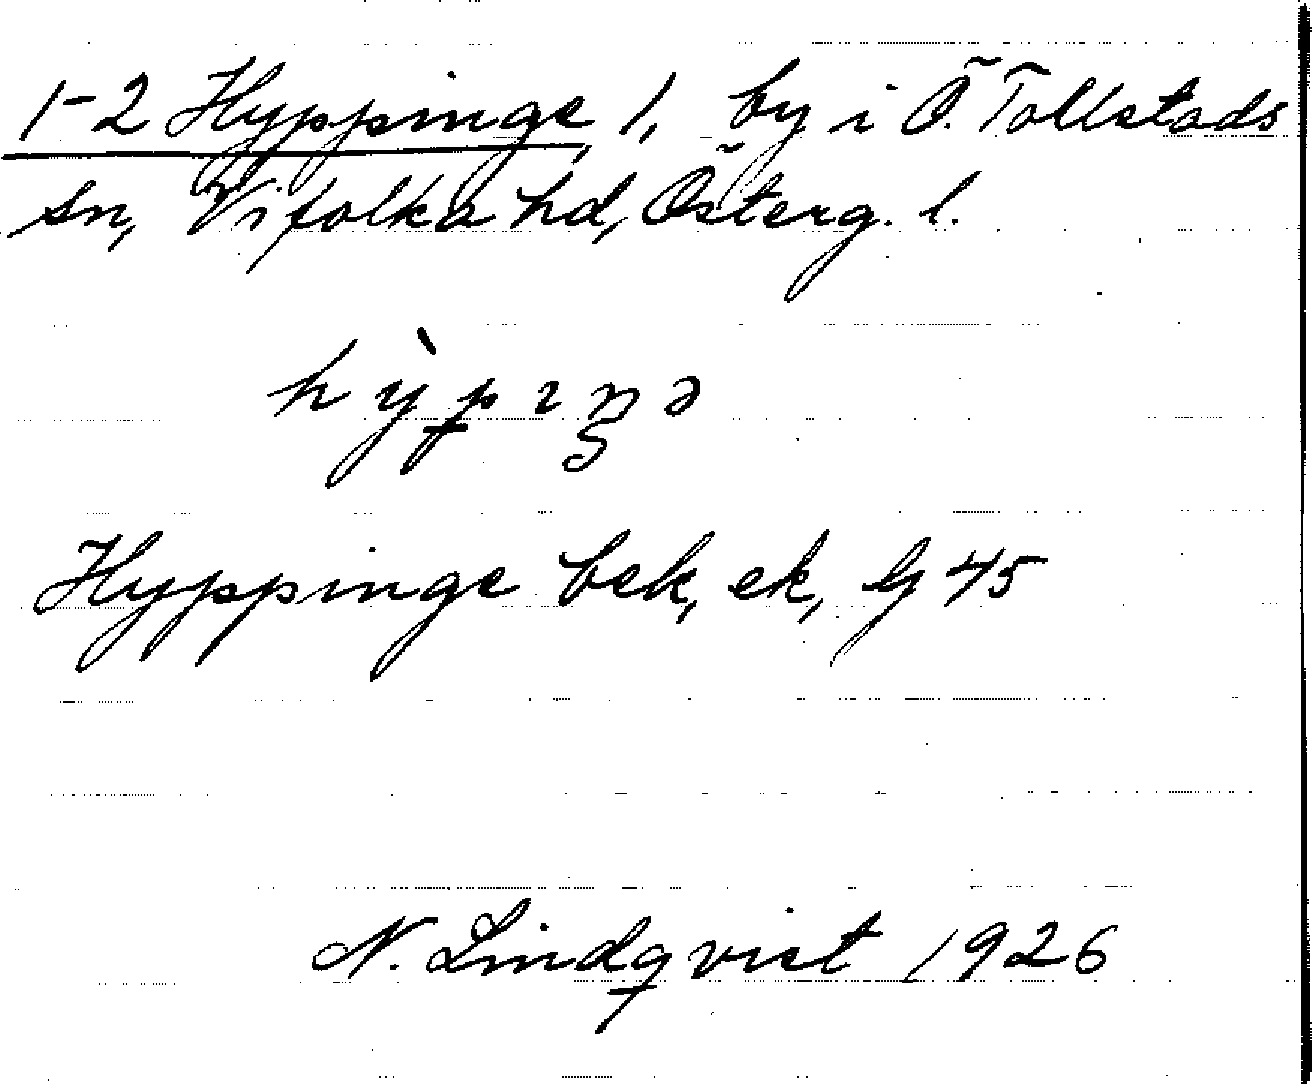 1-2 Hyppinge, 1, by i Ö. Tollstads
sn, Vifolka hd, Österg. l.
hỳpıŋə
Hyppinge bek, ek, lj 45
N. Lindqvist 1926